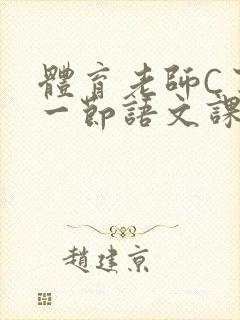 體育老師C了
一節語文課
趙建京